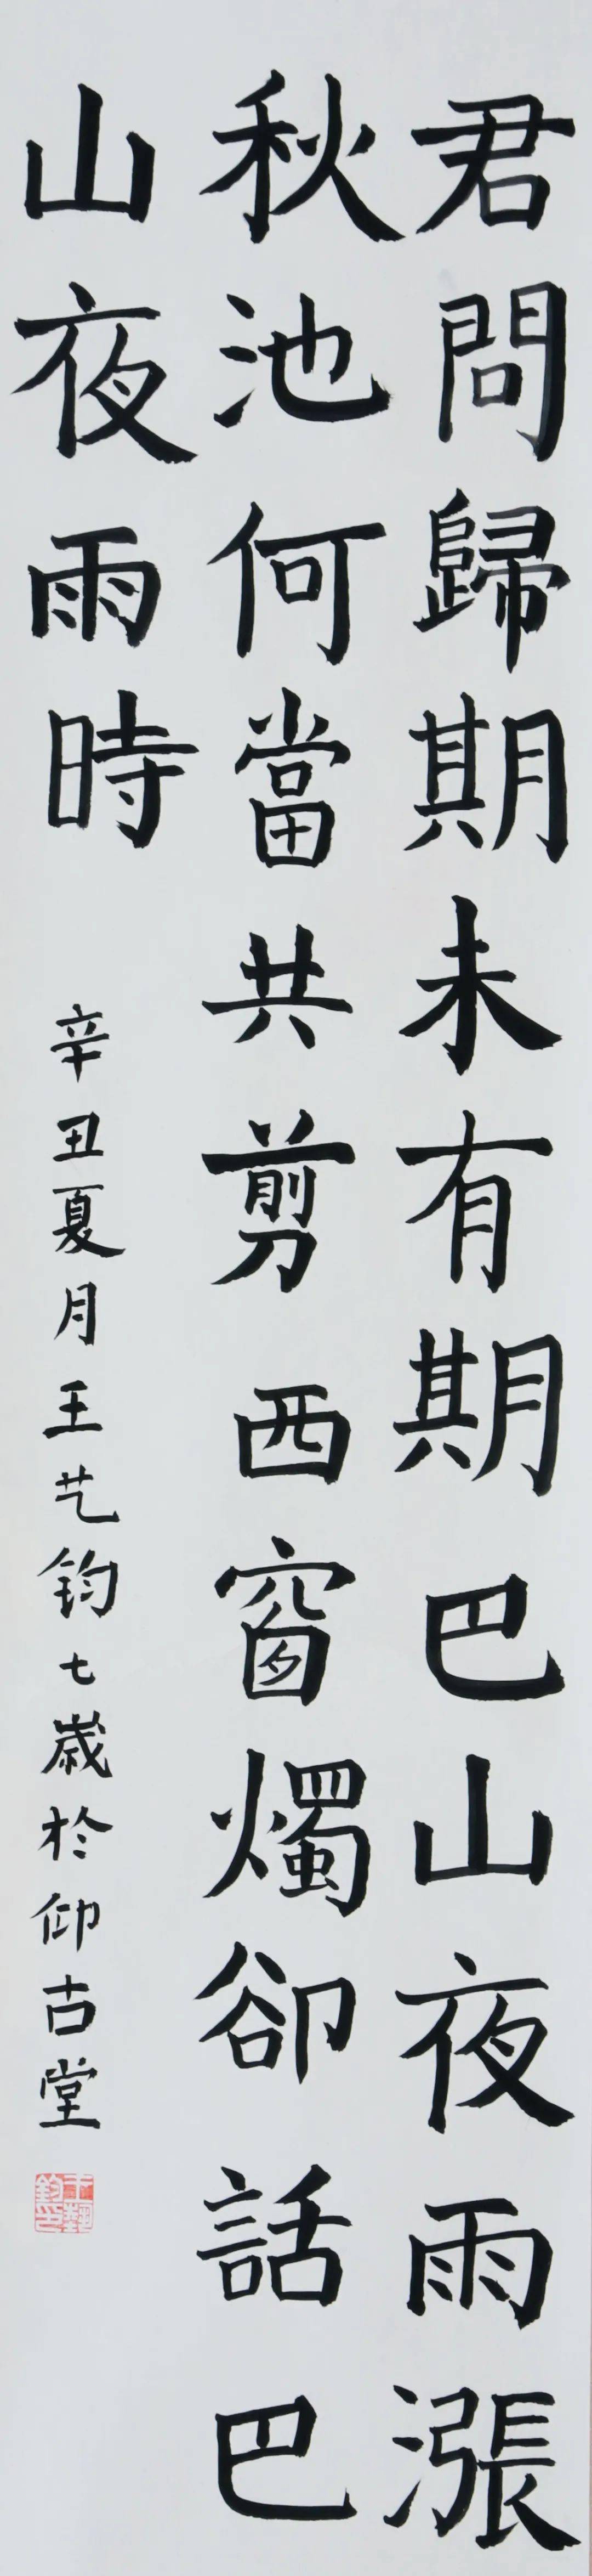 君問歸期未有期巴山夜雨漲
秋池何當共剪西窗燭卻話巴
山夜雨時
辛丑夏月王艺钧七歲於仰古堂
王藝鈞印